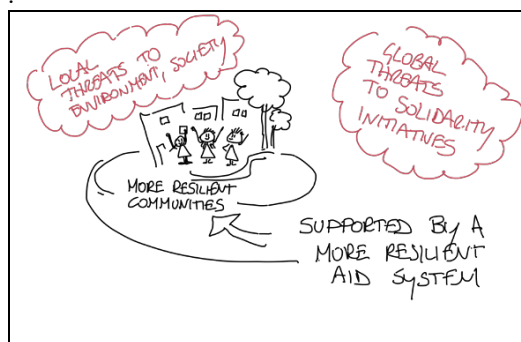 LOCAL
THREATS TO
ENVIRONMENT, SOCIETY
GLOBAL
THREATS
TO SOLIDARITY
INITIATIVES
MORE RESILIENT
COMMUNITIES
SUPPORTED BY A
MORE RESILIENT
AID SYSTEM